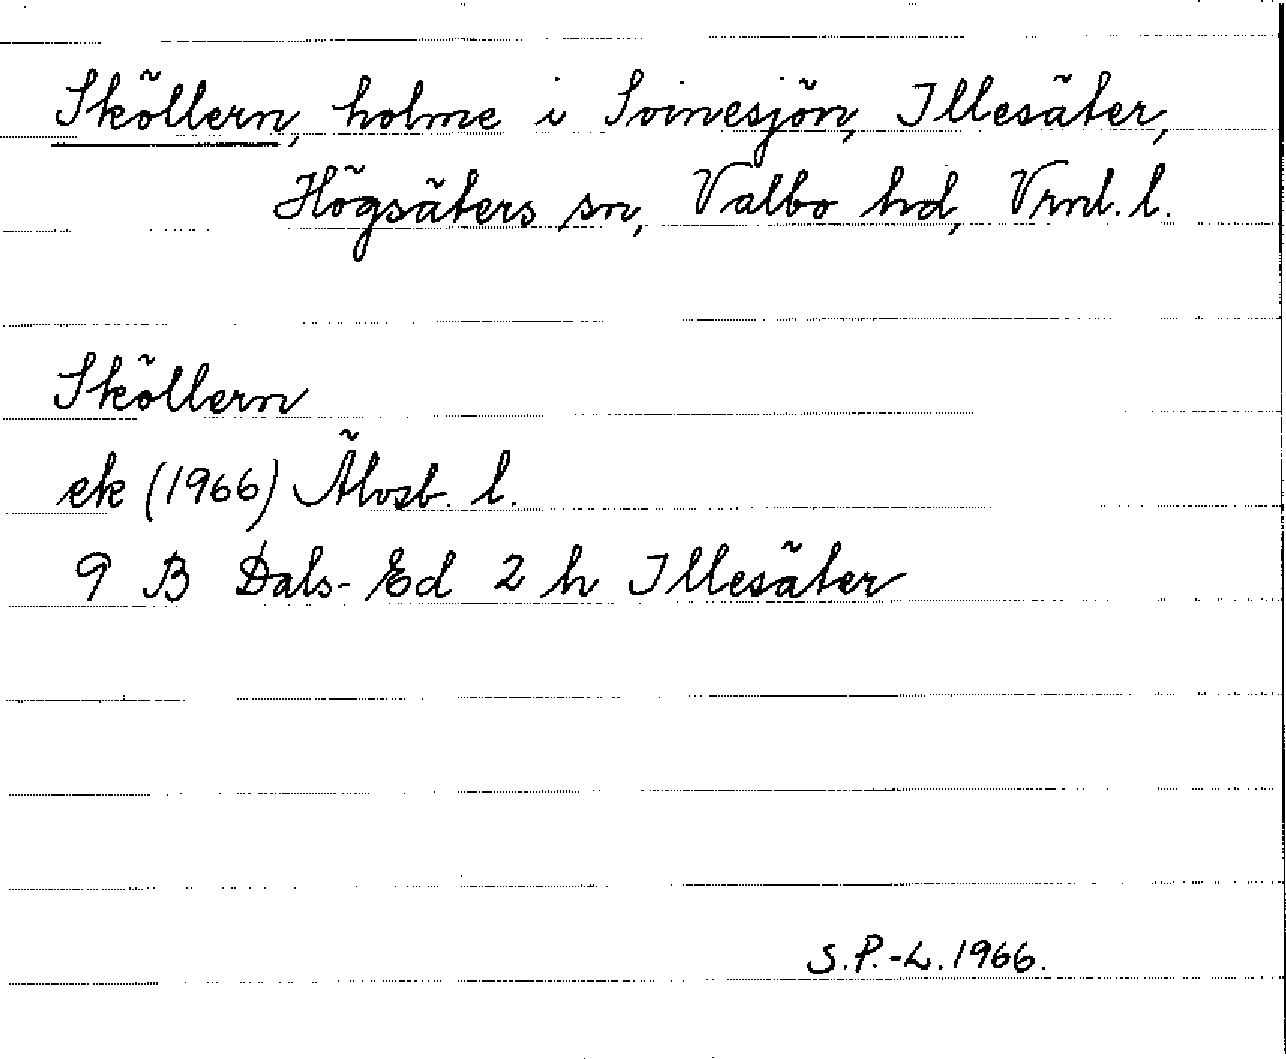 Sköllern, holme i Svinesjön, Illesäter,
Högsäters sn, Valbo hd, Vrml. l.
Sköllern
ek (1966) Älvsb. l.
9 B Dals-Ed 2 h Illesäter
S.P.-L. 1966.